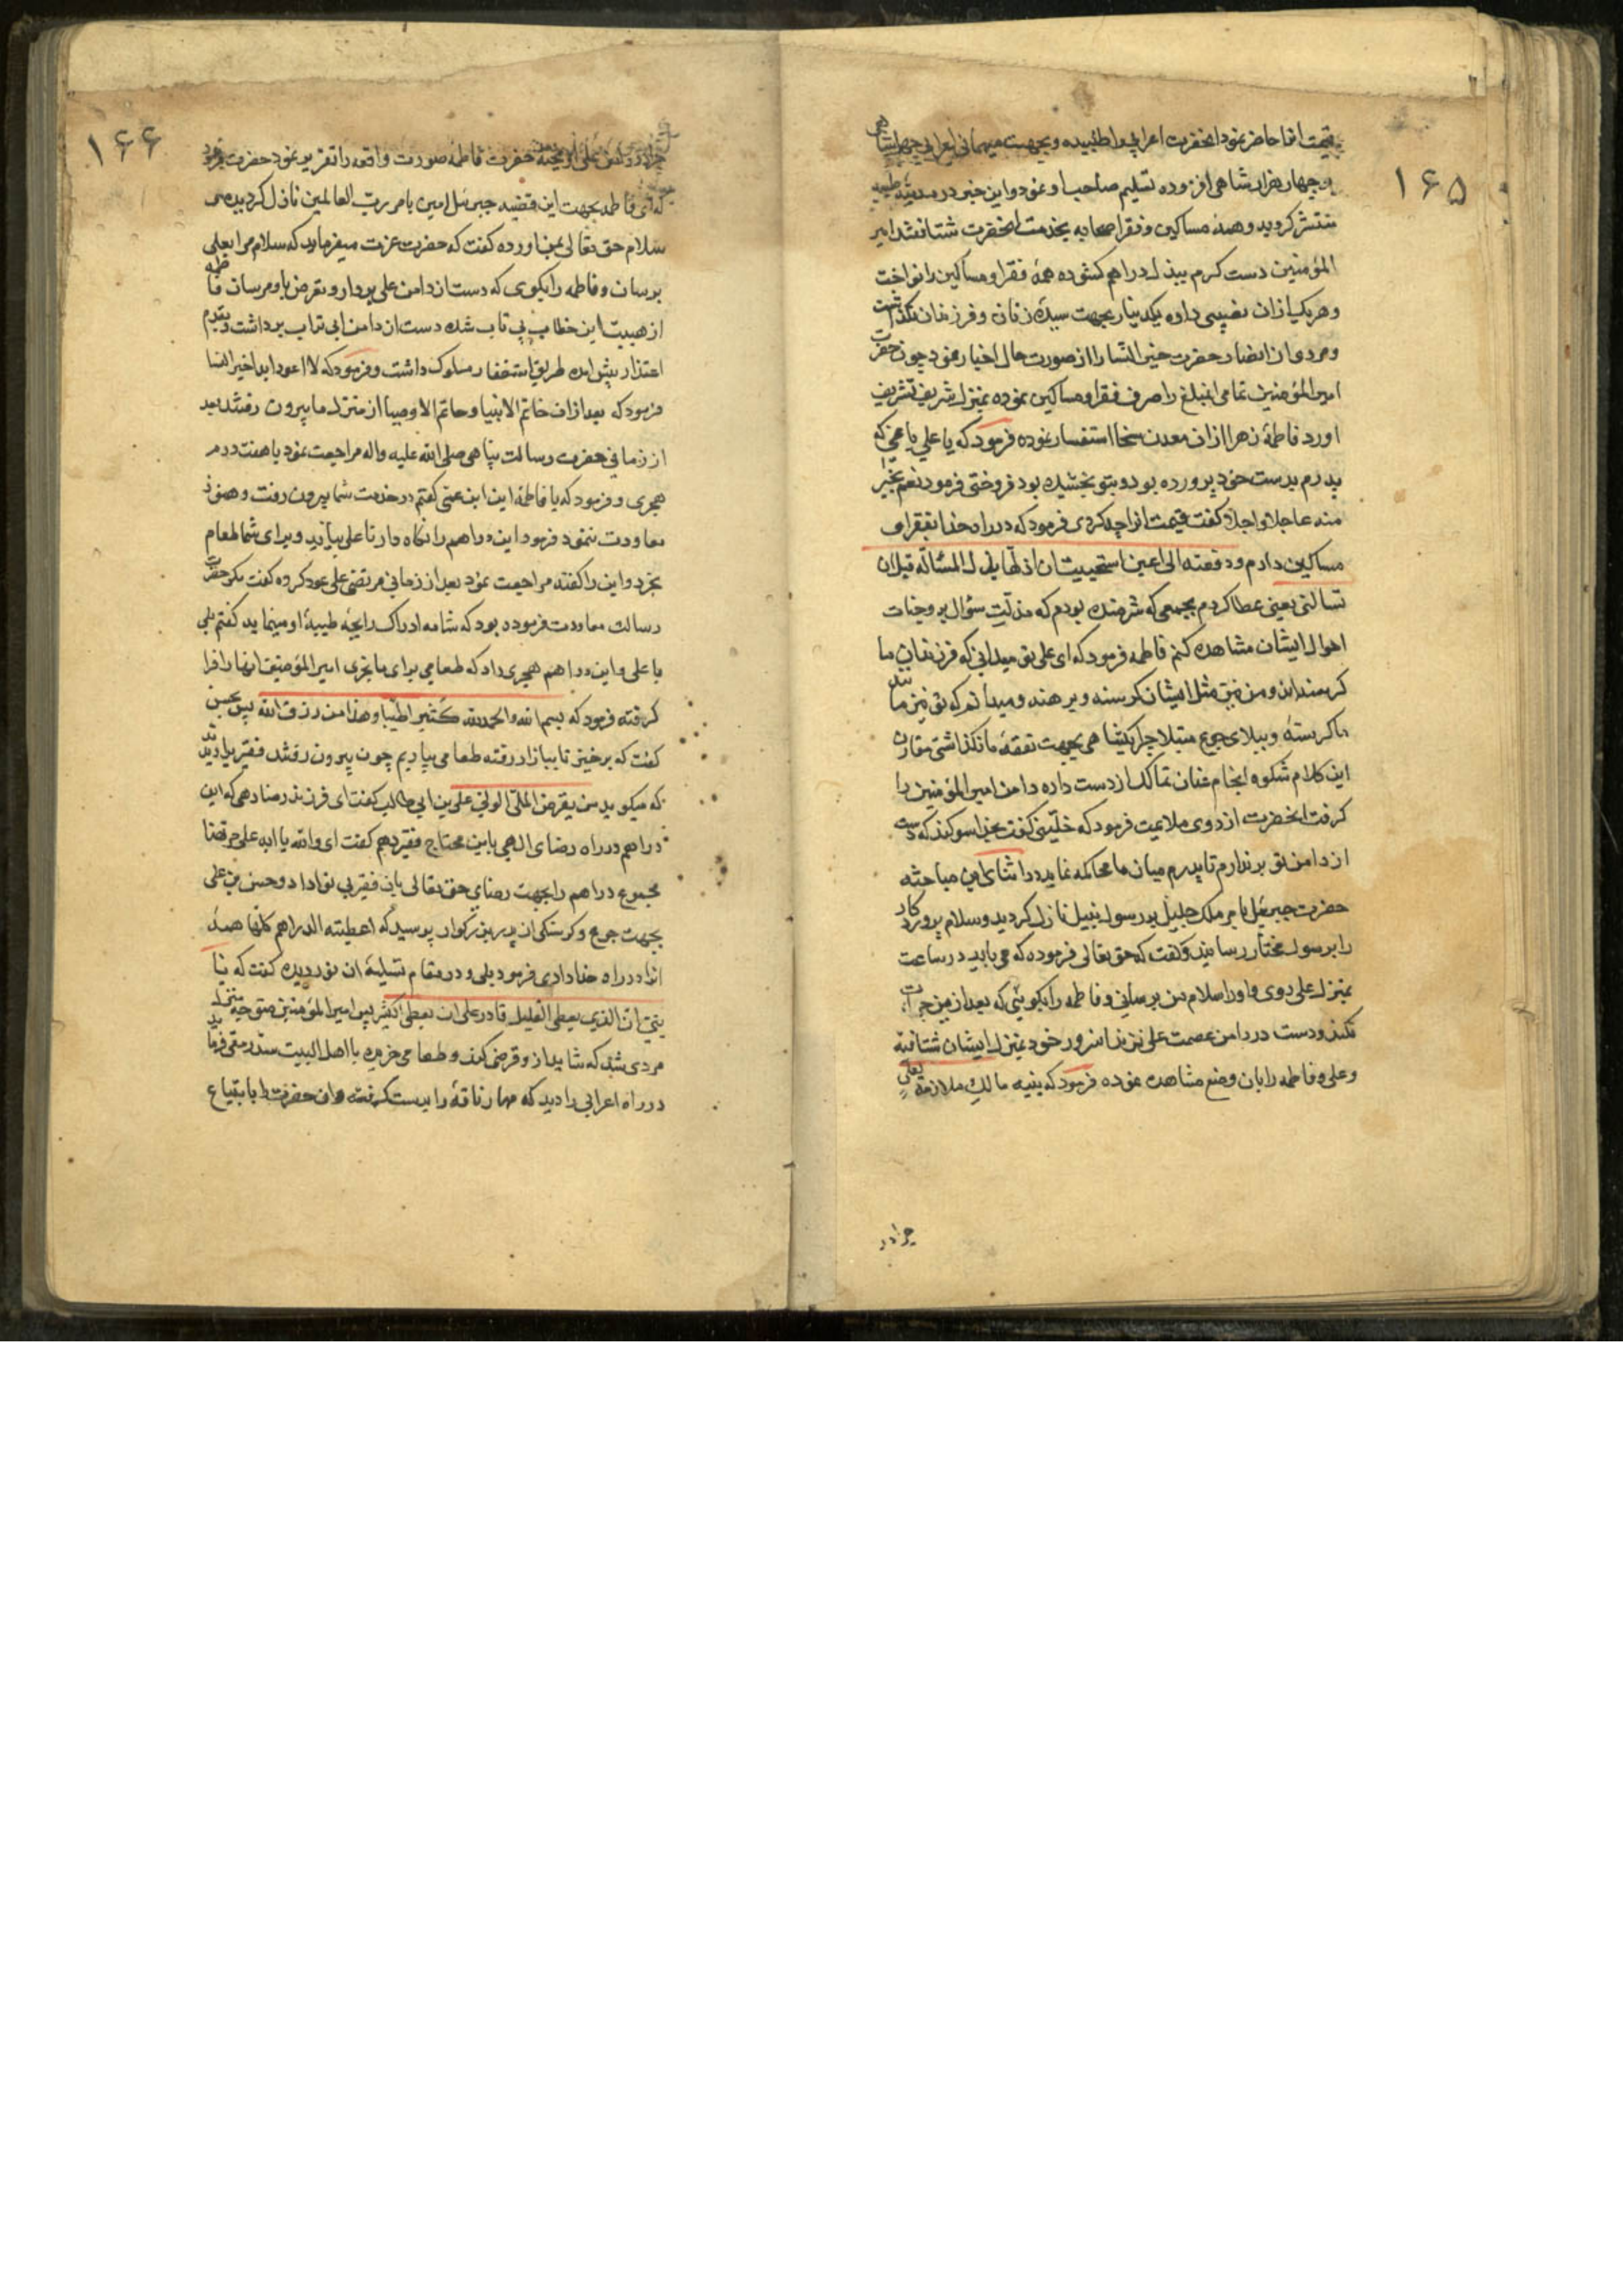 ۱۶۵
قیمت انرا حاضر نمود انحضرت اعرابی را طلبیده و بجهت میهمانی اعرابی چهل شاهی
بر چهار هزار شاهی افزوده تسلیم صاحب او نمود و این خبر در مدینه طیبه
منتشر کردید و همهٔ مساکین و فقرا صحابه بخدمت انحضرت شتافتند امیر
المؤمنین دست کرم ببذل دراهم کشوده همهٔ فقرا و مساکین را نواخت
و هریک را از ان نصیبی داده یکدینار بجهت سیدهٔ زنان و فرزندان نکذاشت
و مردی از انصار حضرت خیر النسا را از صورت حال اخبار نمود چون حضرت
امیر المؤمنین تمامی انمبلغ را صرف فقرا و مساکین نموده بمنزل شریف تشریف
اورد فاطمهٔ زهرا از ان معدن سخا استفسار نموده فرمود که یا علی باغی که
پدرم بدست خود پرورده بود و بتو بخشیده بود فروختی فرمود نعم بخیر
منه عاجلا و اجلا کفت قیمت انرا چه کردی فرمود که در راه خدا بفقرا و
مساکین دادم و دفعته الی اعین استحییت ان اذلها بذل المسئالة قبل ان
تسالنی یعنی عطا کردم بجمعی که شرمنده بودم که مذلت سؤال بر وجنات
احوال ایشان مشاهده کنم فاطمه فرمود که ای علی تو میدانی که فرزندان ما
کرسنه‌اند و من نیز مثل ایشان کرسنه و برهنه و میدانم که تو نیز مانند
ما کرسنهٔ و ببلای جوع مبتلا چرا یکشاهی بجهت نفقهٔ ما نکذاشتی مقارن
این کلام شکوه انجام عنان تمالک از دست داده دامن امیر المؤمنین را
کرفت انحضرت از روی ملایمت فرمود که خلینی کفت بخدا سوکند که دست
از دامن تو برندارم تا پدرم میان ما محاکمه نماید در اثنای این مباحثه
حضرت جبرئیل بامر ملک جلیل بر رسول نبیل نازل کردید و سلام پروردکار
را برسول مختار رسانید و کفت که حق تعالی فرموده که می باید در ساعت
بمنزل علی روی و او را سلام من برسانی و فاطمه را بکویی که بعد ازین جرات
نکند و دست در دامن عصمت علی نزند انسرور خود بمنزل ایشان شتافته
و علی و فاطمه را بان وضع مشاهده نموده فرمود که بنیه مالک ملازمة بعلی
چرا در
۱۶۶
حضرت فاطمه صورت واقعه را تقریر نمود حضرت فرمود
که ای فاطمه بجهت این قضیه جبرئیل امین بامر رب العالمین نازل کردیده
سلام حق تعالی بمن اورده کفت که حضرت عزت میفرماید که سلام مرا بعلی
برسان و فاطمه را بکوی که دست از دامن علی بردار و تعرض باو مرسان فاطمه
از هیبت این خطاب بی تاب شده دست از دامن ابی تراب برداشت و بقدم
اعتذار پیش امده طریق استغفار مسلوک داشت و فرمود که لا اعود ابدا خیر النسا
فرمود که بعد از ان خاتم الانبیا و خاتم الاوصیا از منزل ما بیرون رفتند بعد
از زمانی حضرت رسالت پناهی صلی الله علیه و اله مراجعت نمود با هفت درم
هجری و فرمود که یا فاطمه این ابن عمی کفتم در خدمت شما بیرون رفت و هنوز
معاودت ننمود فرمود این دراهم را نکاه دار تا علی بیاید و برای شما طعام
بخرد و این را کفته مراجعت نمود بعد از زمانی مرتضی علی عود کرده کفت مکر حضرت
رسالت معاودت فرموده بود که شامه ادراک رایحهٔ طیبهٔ او مینماید کفتم بلی
یا علی و این دراهم هجری داد که طعامی برای ما بخری امیر المؤمنین انها را فرا
کرفته فرمود که بسم الله و الحمد لله کثیرا طیبا و هذا من رزق الله پس بحسن
کفت که برخیز تا ببازار رفته طعامی بیاریم چون بیرون رفتند فقیریرا دیدند
که میکوید من یقرض الملی الوفی علی بن ابی طالب کفت ای فرزند رضا دهی که این
دراهم در راه رضای الهی باین محتاج فقیر دهم کفت ای والله یا ابه علی مرتضا
مجموع دراهم را بجهت رضای حق تعالی بان فقیر بی نوا داد و حسن بن علی
بجهت جوع و کرسنکی از پدر بزرکوار پرسید که اعطیته الدراهم کلها همهٔ
انرا در راه خدا دادی فرمود بلی و در مقام تسلیهٔ ان نوردیده کفت که یا
بنی ان الذی یعطی القلیل قادر علی ان یعطی الکثیر پس امیر المؤمنین متوجه منزل
مردی شد که شاید از و قرض کند و طعامی خریده با اهل البیت سد رمقی فرماید
در راه اعرابی را دید که مهار ناقهٔ را بدست کرفته و ان حضرت را بابتیاع